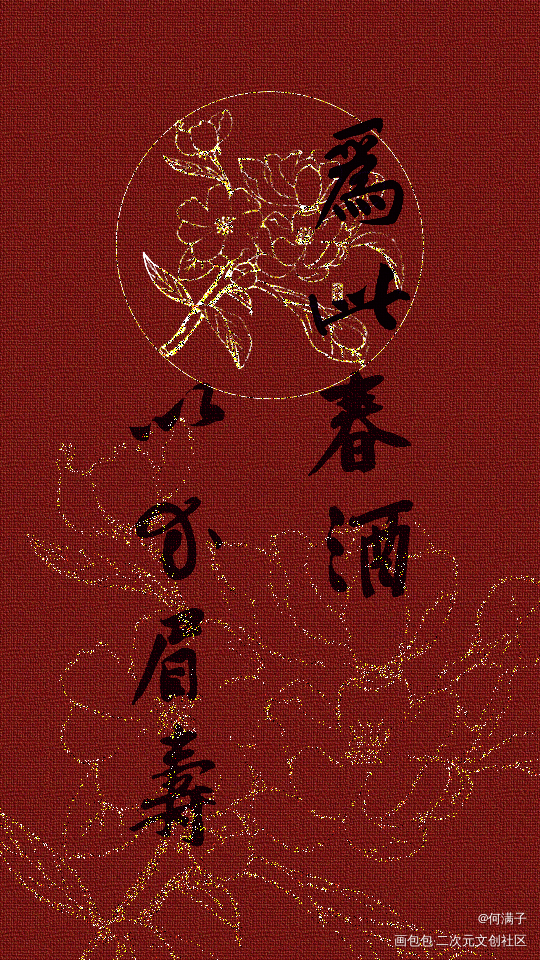 為此春酒
以介眉壽
@何满子
画包包 二次元文创社区